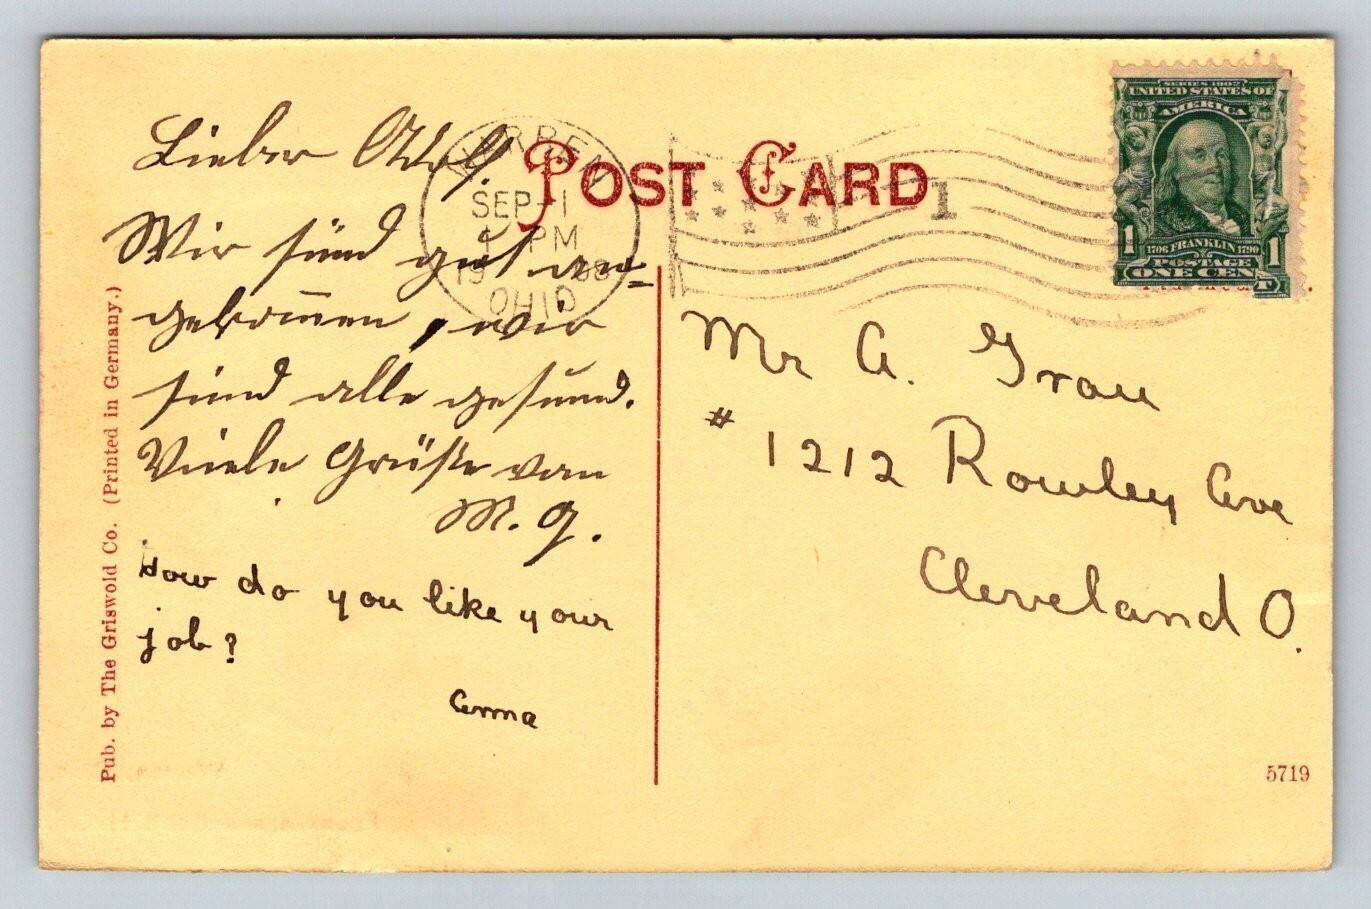 POST CARD
WARREN
SEP-1
4 PM
1908
OHIO
1
SERIES 1902
UNITED STATES OF
AMERICA
1 1706 FRANKLIN 1790 1
POSTAGE
ONE CENT
Lieber Adolf.
Wir sind gut an=
gekom̅en, wir
sind alle gesund.
Viele Grüße von
M. G.
How do you like your
job?
Anna
Mr A. Grau
# 1212 Rowley Ave
Cleveland O.
Pub. by The Griswold Co. (Printed in Germany.)
5719